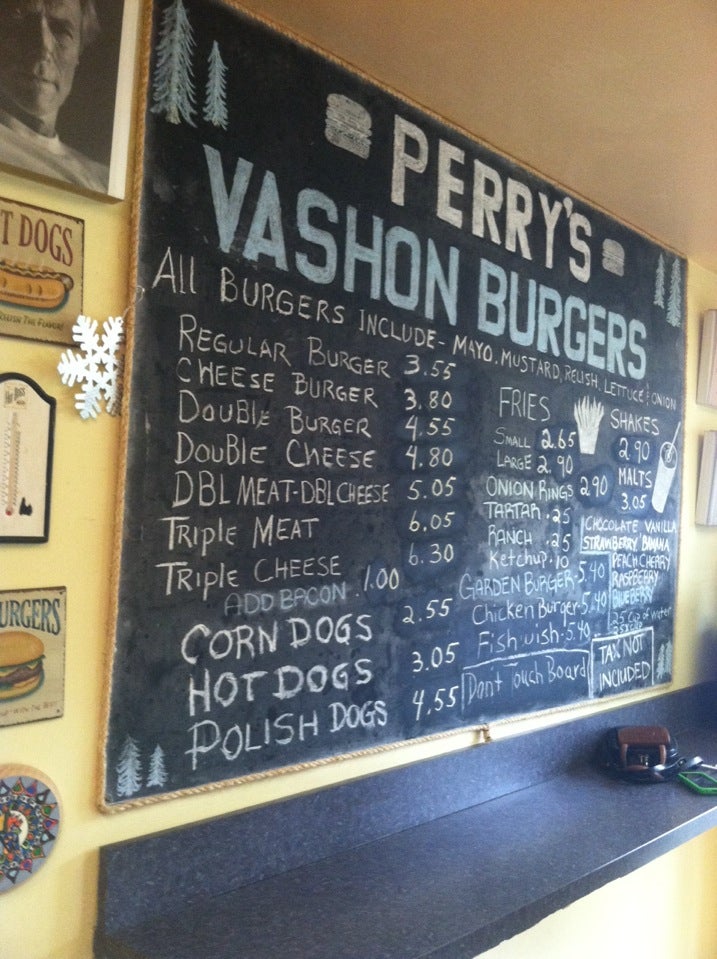 PERRY'S
VASHON BURGERS
All BURGERS INCLUDE - MAYO, MUSTARD, RELISH, LETTUCE & ONION
REGULAR BURGER 3.55
CHEESE BURGER 3.80
DOUBLE BURGER 4.55
DOUBLE CHEESE 4.80
DBL MEAT-DBL CHEESE 5.05
TRIPLE MEAT 6.05
TRIPLE CHEESE 6.30
ADD BACON .1.00
CORN DOGS 2.55
HOT DOGS 3.05
POLISH DOGS 4.55
FRIES
SMALL 2.65
LARGE 2.90
ONION RINGS 2.90
TARTAR .25
RANCH .25
Ketchup .10
GARDEN BURGER-5.40
Chicken Burger-5.40
Fishwish-5.40
Dont Touch Board
SHAKES
2.90
MALTS
3.05
CHOCOLATE VANILLA
STRAWBERRY BANANA
PEACH CHERRY
RASPBERRY
BLUEBERRY
.25 Cup of water
TAX NOT
INCLUDED
T DOGS
RELISH THE FLAVOR!
URGERS